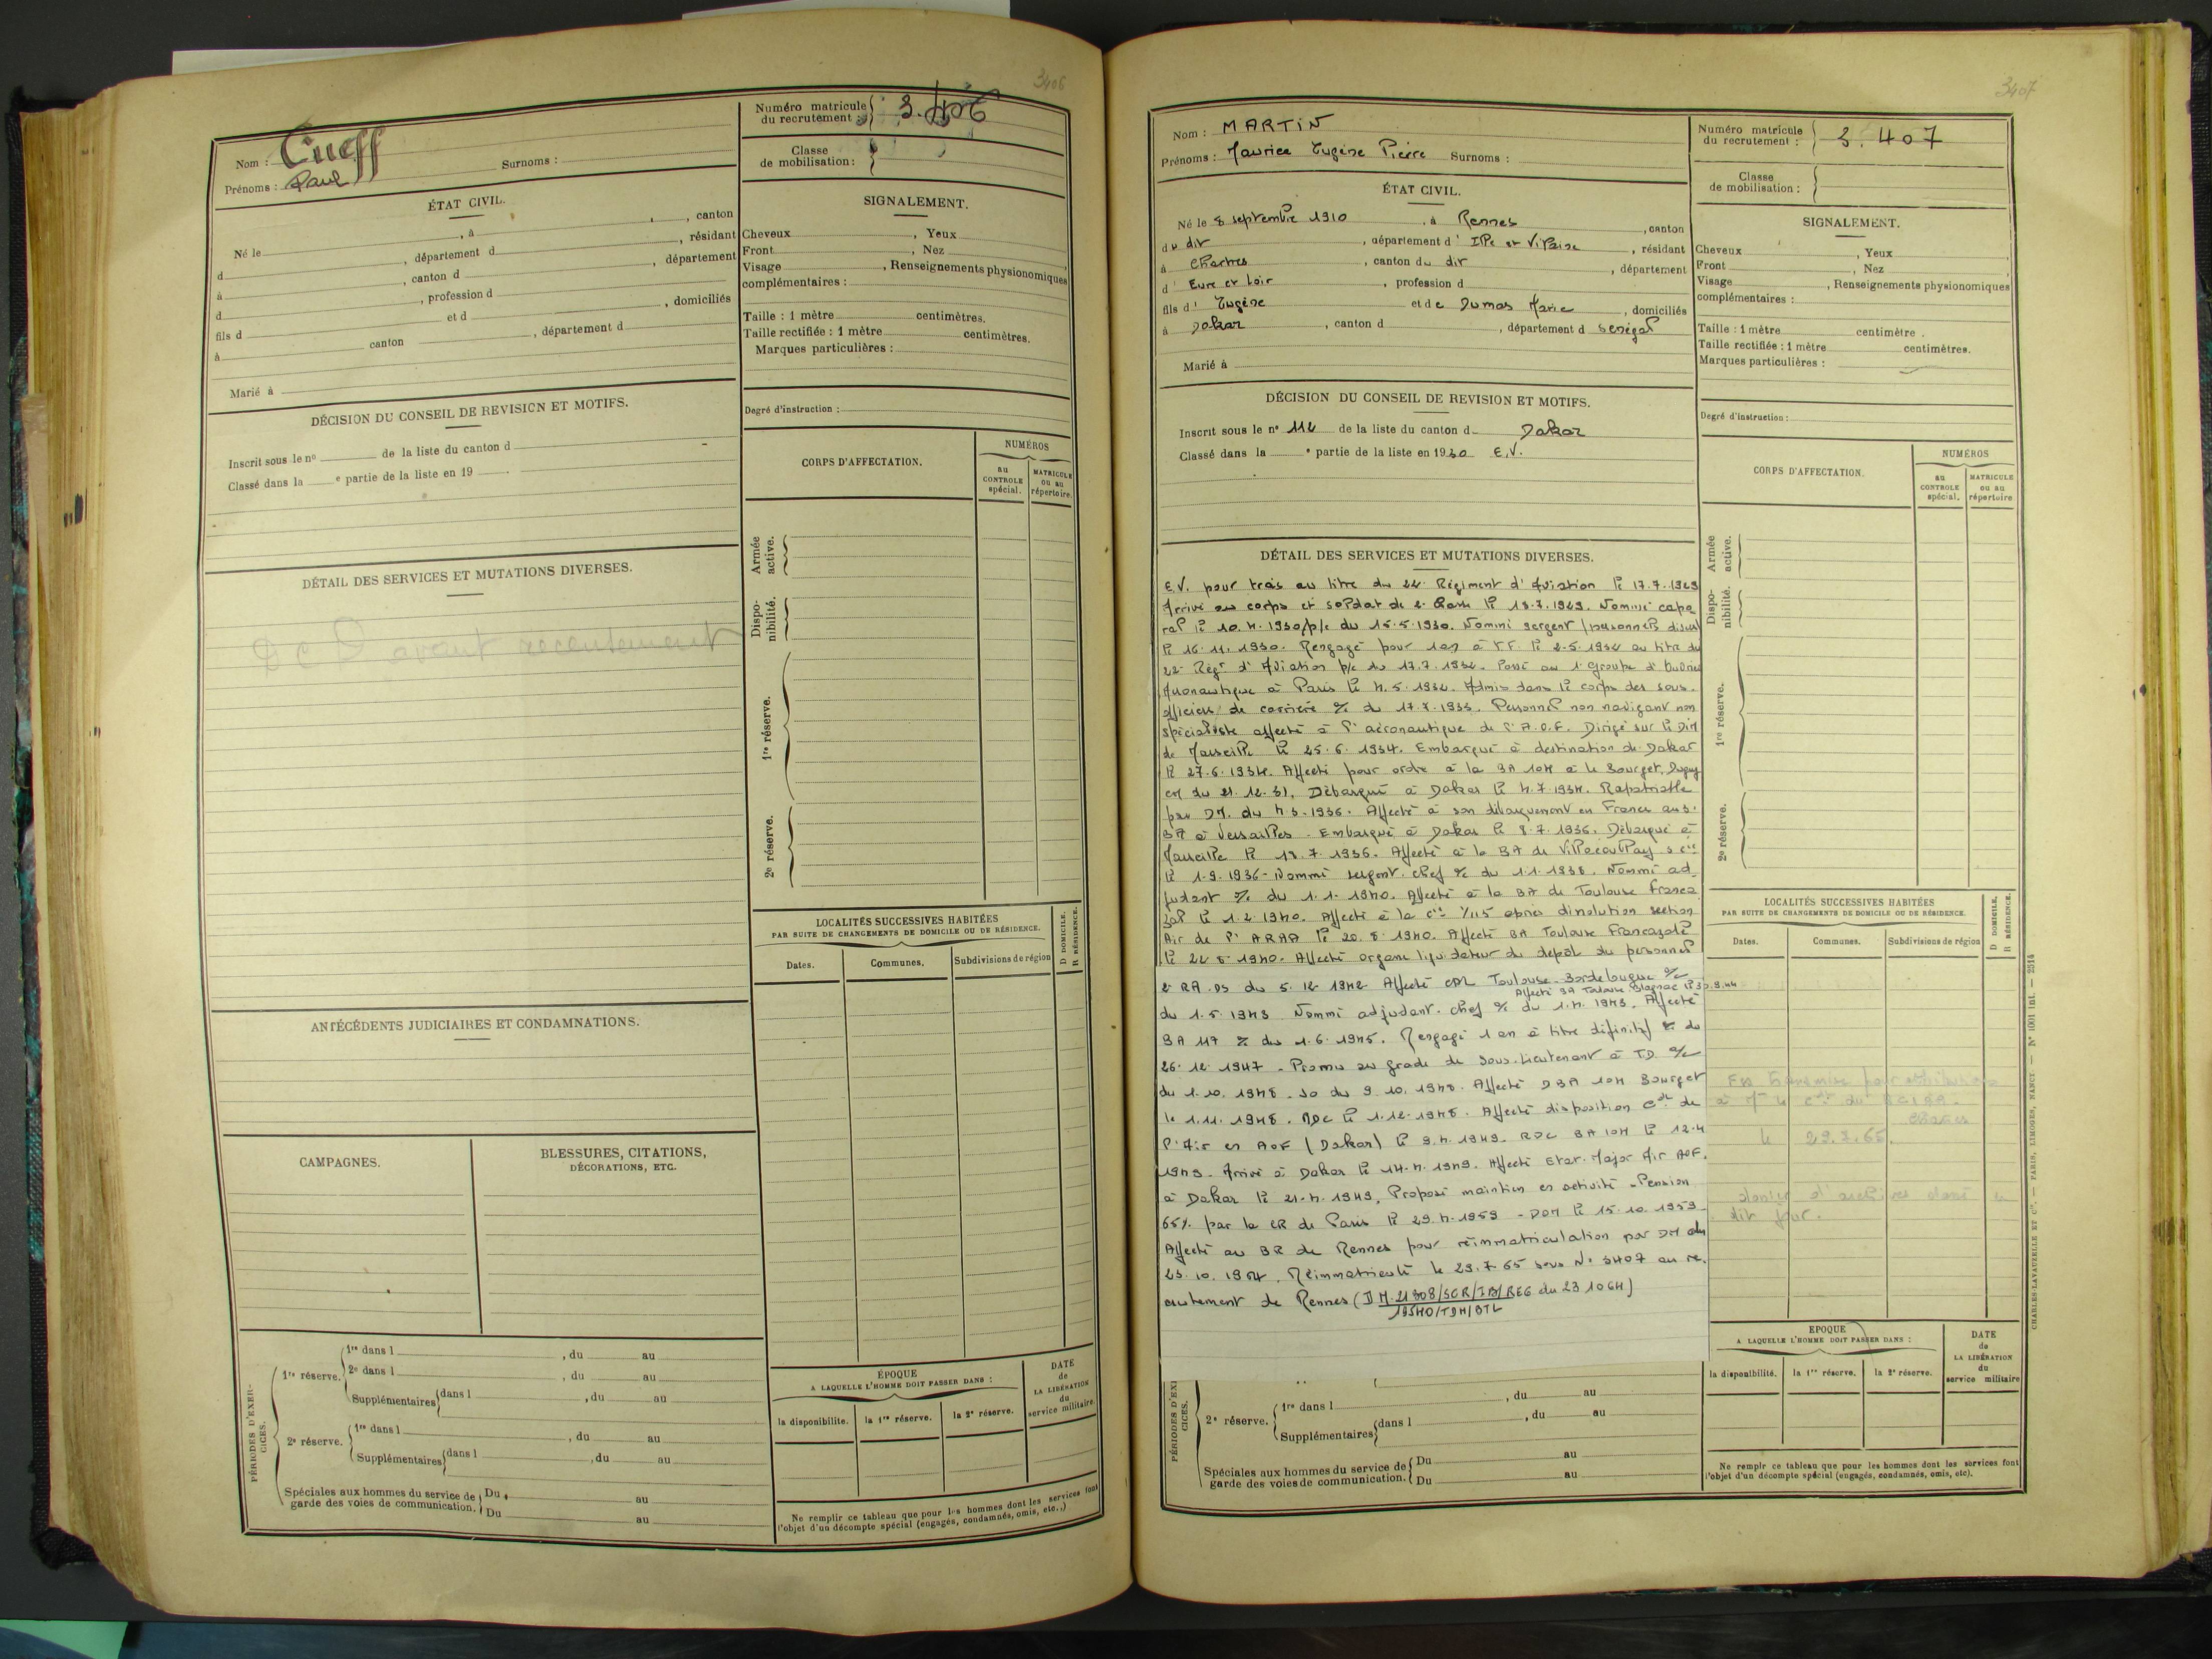 3406
Nom : Cueff
Prénoms : Paul
Surnoms :
Numéro matricule du recrutement : 3.406
Classe de mobilisation :
ÉTAT CIVIL.
Né le , à , canton
d , département d , résidant
à , canton d , département
d , profession d
fils d et d , domiciliés
à canton , département d
Marié à
SIGNALEMENT.
Cheveux , Yeux
Front , Nez
Visage , Renseignements physionomiques
complémentaires :
Taille : 1 mètre centimètres.
Taille rectifiée : 1 mètre centimètres.
Marques particulières :
Degré d'instruction :
DÉCISION DU CONSEIL DE REVISION ET MOTIFS.
Inscrit sous le no de la liste du canton d
Classé dans la e partie de la liste en 19
CORPS D'AFFECTATION.
NUMÉROS
au CONTROLE spécial.
MATRICULE ou au répertoire.
DÉTAIL DES SERVICES ET MUTATIONS DIVERSES.
D c D avant recensement
Armée active.
Disponibilité.
1re réserve.
2e réserve.
LOCALITÉS SUCCESSIVES HABITÉES
PAR SUITE DE CHANGEMENTS DE DOMICILE OU DE RÉSIDENCE.
D DOMICILE.
R RÉSIDENCE.
Dates.
Communes.
Subdivisions de région
ANTÉCÉDENTS JUDICIAIRES ET CONDAMNATIONS.
CAMPAGNES.
BLESSURES, CITATIONS,
DÉCORATIONS, ETC.
PÉRIODES D'EXERCICES.
1re réserve.
1re dans l , du au
2e dans l , du au
Supplémentaires dans l , du au
2e réserve.
1re dans l , du au
Supplémentaires dans l , du au
Spéciales aux hommes du service de garde des voies de communication.
Du au
Du au
ÉPOQUE
A LAQUELLE L'HOMME DOIT PASSER DANS :
la disponibilite.
la 1re réserve.
la 2e réserve.
DATE de LA LIBÉRATION du service militaire.
Ne remplir ce tableau que pour les hommes dont les services font
l'objet d'un décompte spécial (engagés, condamnés, omis, etc..)
3407
Nom : MARTIN
Prénoms : Maurice Eugène Pierre Surnoms :
Numéro matricule du recrutement : 3.407
Classe de mobilisation :
ÉTAT CIVIL.
Né le 8 septembre 1910 , à Rennes , canton
du dit , département d' Ille et Vilaine , résidant
à Chartres , canton du dit , département
d' Eure et Loir , profession d
fils d' Eugène et de Dumas Marie , domiciliés
à Dakar , canton d , département d Sénégal
Marié à
SIGNALEMENT.
Cheveux , Yeux
Front , Nez
Visage , Renseignements physionomiques
complémentaires :
Taille : 1 mètre centimètre .
Taille rectifiée : 1 mètre centimètres.
Marques particulières :
Degré d'instruction :
DÉCISION DU CONSEIL DE REVISION ET MOTIFS.
Inscrit sous le no 112 de la liste du canton d Dakar
Classé dans la e partie de la liste en 1930 E.V.
CORPS D'AFFECTATION.
NUMÉROS
au CONTROLE spécial.
MATRICULE ou au répertoire
DÉTAIL DES SERVICES ET MUTATIONS DIVERSES.
E.V. pour trois au titre du 22e Régiment d'Aviation le 17.7.1929
Arrivé au corps et soldat de 2e classe le 18.7.1929. Nommé capo
ral le 10.4.1930 p/c du 15.5.1930. Nommé sergent (personnels
le 16.11.1930. Rengagé pour 1 an à le 2.5.1932 au titre du
22e Régt d'Aviation p/c du 17.7.1932. Passé au 1er Groupe d'Ouvriers
Aéronautique à Paris le 4.5.1932. Admis dans le corps des sous-
officiers de carrière p/c du 17.7.1933. Personnel non navigant non
spécialiste affecté à l'aéronautique de l'A.O.F. Dirigé sur le DIM
de Marseille le 25.6.1934. Embarqué à destination de Dakar
le 27.6.1934. Affecté pour ordre à la BA 104 à le Bourget. Dugny
du 21.12.31. Débarqué à Dakar le 4.7.1934. Rapatriable
par DM. du 4.3.1936. Affecté à son débarquement en France
BA à Versailles - Embarqué à Dakar le 8.7.1936. Débarqué à
Marseille le 18.7.1936. Affecté à la BA de Villacoublay
le 1-9.1936 - Nommé sergent. chef p/c du 1.1.1938. Nommé ad-
judant p/c du 1.1.1940. Affecté à la BA de Toulouse Franca
zal le 1.2.1940. Affecté à la Cie 1/115 après dissolution section
Air de l'ARAA le 20.8.1940. Affecté BA Toulouse Francazal
le 22.8.1940. Affecté organe liquidateur du dépôt du personnel
2e RA. DS du 5.12.1942 Affecté Toulouse - p/c
Affecté BA Toulouse Blagnac le 30.9.44
du 1.5.1943 Nommé adjudant. chef p/c du 1.4.1943. Affecté
BA 117 p/c du 1.6.1945. Rengagé 1 an à titre définitif p/c du
26.12.1947 - Promu au grade de Sous-Lieutenant à T.D. p/c
du 1.10.1948. JO du 9.10.1948. Affecté DBA 104 Bourget
le 1.11.1948. RDC le 1.12.1948. Affecté disposition Cdt de
l'Air en AOF (Dakar) le 9.4.1949. RDC BA 104 le 12.4
1949. Arrivé à Dakar le 14.4.1949. Affecté Etat-Major Air AOF.
à Dakar le 21.4.1949. Proposé maintien en activité - Pension
65% par la CR de Paris le 29.4.1959 - le 15.10.1959 -
Affecté au BR de Rennes pour réimmatriculation par DM du
23.10.1964. Réimmatriculé le 29.7.65 sous No 3407 au re-
crutement de Rennes (DM. 21808/SCR/IB/REG du 23 10 64)
19540/TDM/BTL
Armée active.
Disponibilité.
1re réserve.
2e réserve.
LOCALITÉS SUCCESSIVES HABITÉES
PAR SUITE DE CHANGEMENTS DE DOMICILE OU DE RÉSIDENCE.
D DOMICILE.
R RÉSIDENCE.
Dates.
Communes.
Subdivisions de région
transmise pour
à Mr le du
Chartres
le 29.7.65.
d'archives le
dit jour.
PÉRIODES D'EXERCICES.
, du au
2e réserve.
1re dans l , du au
Supplémentaires dans l
Spéciales aux hommes du service de garde des voies de communication.
Du au
Du au
EPOQUE
A LAQUELLE L'HOMME DOIT PASSER DANS :
la disponibilité.
la 1re réserve.
la 2e réserve.
DATE de LA LIBÉRATION du service militaire
Ne remplir ce tableau que pour les hommes dont les services font
l'objet d'un décompte spécial (engagés, condamnés, omis, etc).
CHARLES-LAVAUZELLE ET Cie. — PARIS, LIMOGES, NANCY — No 1001 int. — 2514